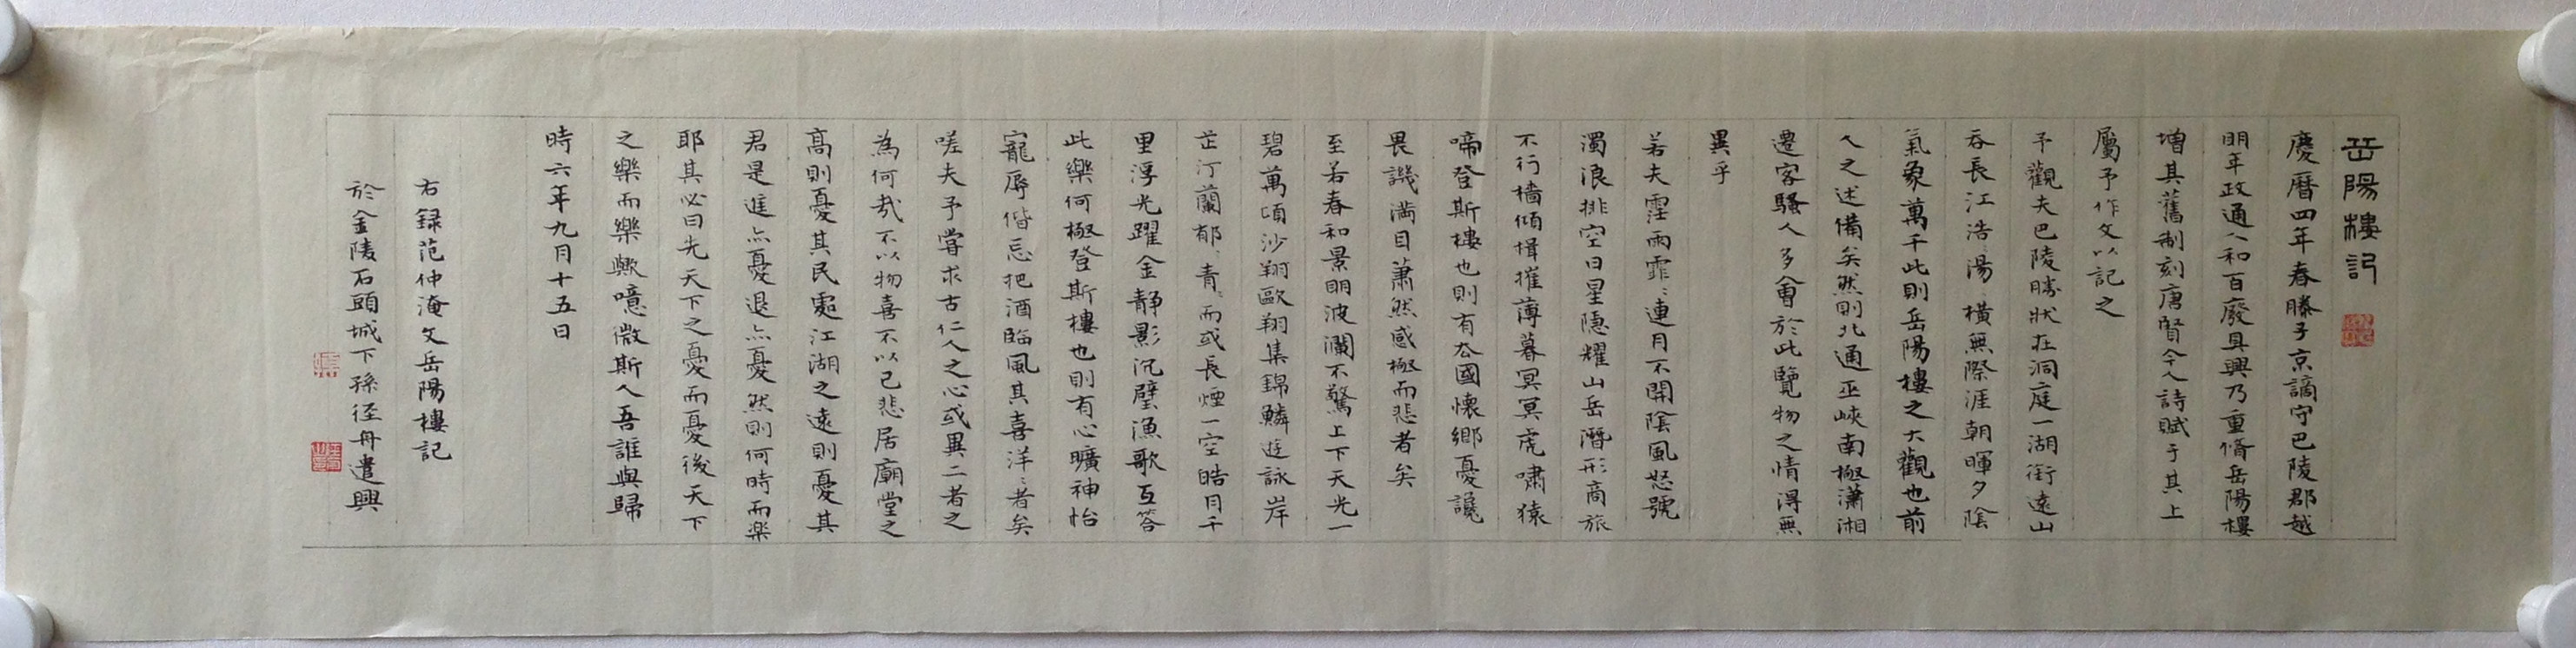 岳陽樓記
慶曆四年春滕子京謫守巴陵郡越
明年政通人和百廢具興乃重脩岳陽樓
增其舊制刻唐賢今人詩賦于其上
屬予作文以記之
予觀夫巴陵勝狀在洞庭一湖銜遠山
吞長江浩浩湯湯橫無際涯朝暉夕陰
氣象萬千此則岳陽樓之大觀也前
人之述備矣然則北通巫峽南極瀟湘
遷客騷人多會於此覽物之情得無
異乎
若夫霪雨霏〻連月不開陰風怒號
濁浪排空日星隱耀山岳潛形商旅
不行檣傾楫摧薄暮冥冥虎嘯猿
啼登斯樓也則有去國懷鄉憂讒
畏譏滿目蕭然感極而悲者矣
至若春和景明波瀾不驚上下天光一
碧萬頃沙翔歐翔集錦鱗遊詠岸
芷汀蘭郁〻青〻而或長煙一空皓月千
里浮光躍金靜影沉璧漁歌互答
此樂何極登斯樓也則有心曠神怡
寵辱偕忘把酒臨風其喜洋〻者矣
嗟夫予嘗求古仁人之心或異二者之
為何哉不以物喜不以己悲居廟堂之
高則憂其民處江湖之遠則憂其
君是進亦憂退亦憂然則何時而樂
耶其必曰先天下之憂而憂後天下
之樂而樂歟噫微斯人吾誰與歸
時六年九月十五日
右録范仲淹文岳陽樓記
於金陵石頭城下孫徑舟遣興